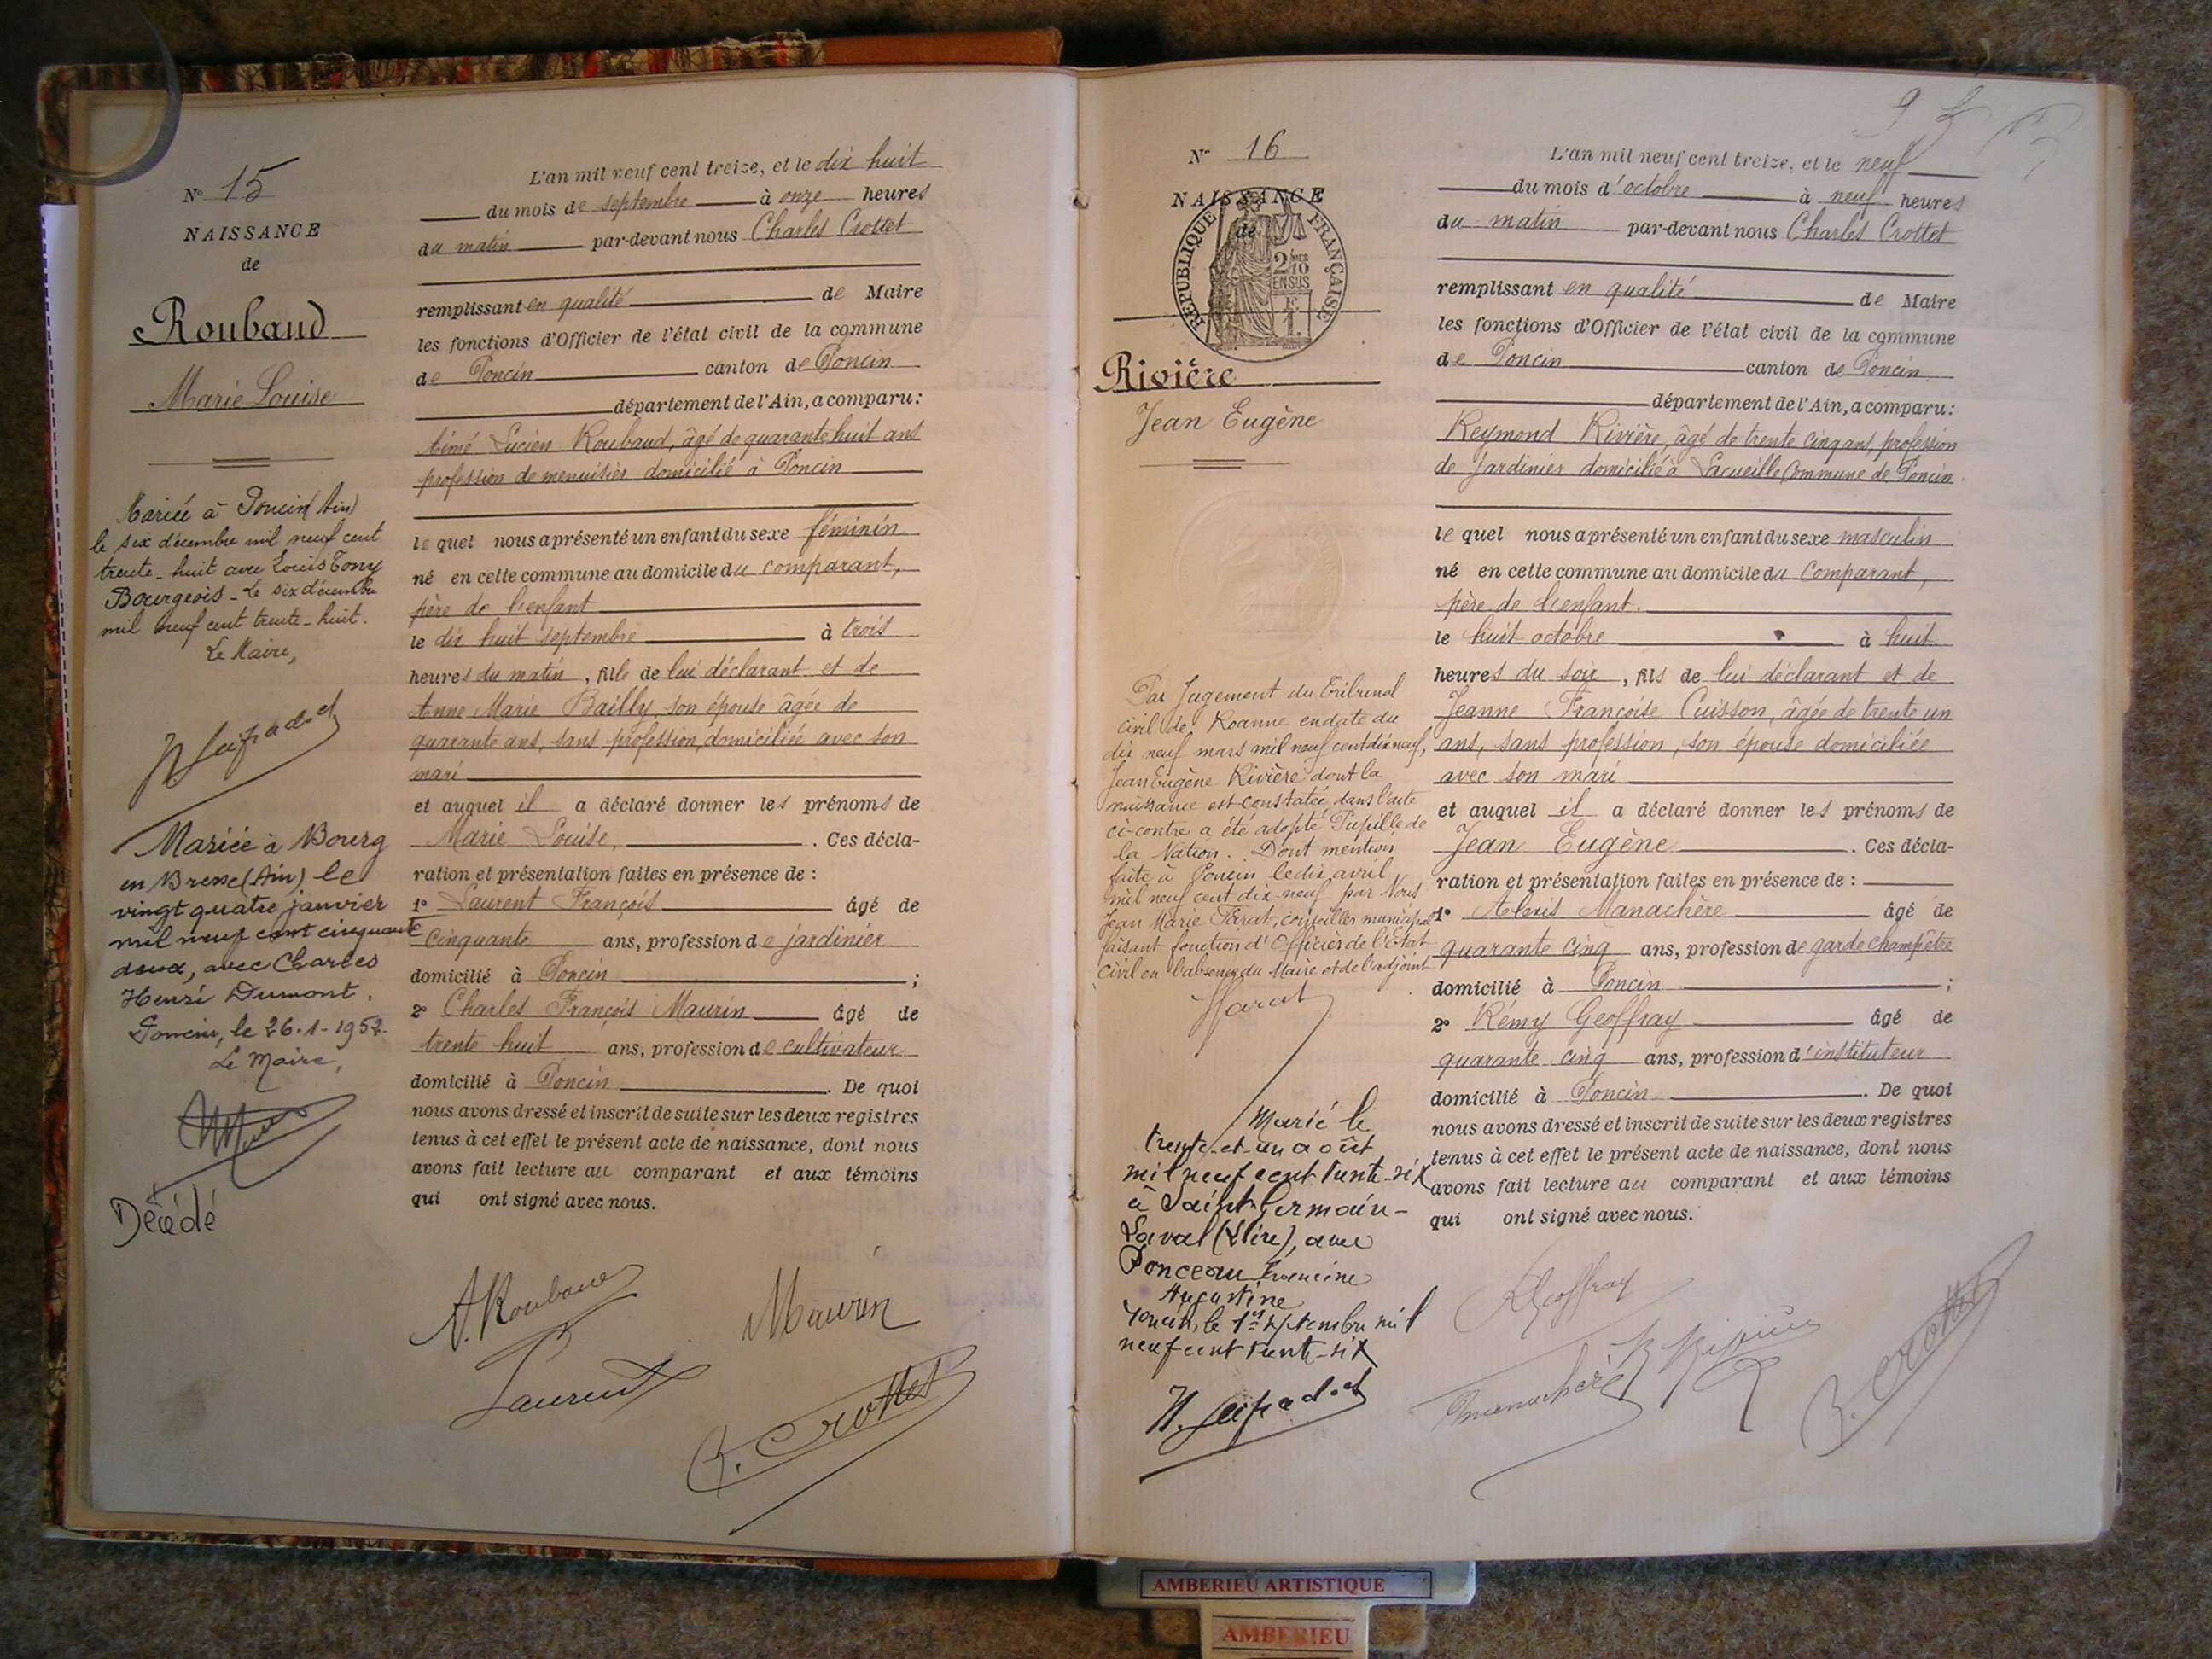 N° 15
NAISSANCE
de
Roubaud
Marie Louise
Mariée à Poncin (Ain)
le six décembre mil neuf cent
trente-huit avec Louis Tony
Bourgeois - Le six décembre
mil neuf cent trente-huit.
Le Maire,
Mariée à Bourg
en Bresse (Ain) le
vingt quatre janvier
mil neuf cent cinquante
deux, avec Charles
Henri Dumont.
Poncin, le 26-1-1952.
Le Maire,
Décédé
L'an mil neuf cent treize, et le dix huit
du mois de septembre à onze heures
du matin par-devant nous Charles Crottet
remplissant en qualité de Maire
les fonctions d'Officier de l'état civil de la commune
de Poncin canton de Poncin
département de l'Ain, a comparu:
Aimé Lucien Roubaud, âgé de quarante huit ans
profession de menuisier domicilié à Poncin
le quel nous a présenté un enfant du sexe féminin
né en cette commune au domicile du comparant,
père de l'enfant
le dix huit septembre à trois
heures du matin, fille de lui déclarant et de
Anne Marie Bailly, son épouse âgée de
quarante ans, sans profession, domiciliée avec son
mari
et auquel il a déclaré donner les prénoms de
Marie Louise, . Ces décla-
ration et présentation faites en présence de :
1° Laurent François âgé de
cinquante ans, profession de jardinier
domicilié à Poncin ;
2° Charles François Maurin âgé de
trente huit ans, profession de cultivateur
domicilié à Poncin . De quoi
nous avons dressé et inscrit de suite sur les deux registres
tenus à cet effet le présent acte de naissance, dont nous
avons fait lecture au comparant et aux témoins
qui ont signé avec nous.
A. Roubaud
Maurin
Laurent
C. Crottet
9
N° 16
NAISSANCE
de
REPUBLIQUE FRANÇAISE
2/10
EN SUS
F.
1.
Rivière
Jean Eugène
Par Jugement du Tribunal
civil de Roanne en date du
dix neuf mars mil neuf cent dix neuf,
Jean Eugène Rivière dont la
naissance est constatée dans l'acte
ci-contre a été adopté Pupille de
la Nation. Dont mention
faite à Poncin le dix avril
mil neuf cent dix-neuf par Nous
Jean Marie conseiller municipal
faisant fonction d'Officier de l'Etat
civil en l'absence du Maire et de l'adjoint
Marié le
trente-et-un août
mil neuf cent trente-six
à Saint-Germain-
Laval (Loire), avec
Ponceau Francine
Augustine
Poncin, le 1er septembre mil
neuf cent trente-six
L'an mil neuf cent treize, et le neuf
du mois d'octobre à neuf heures
du matin par-devant nous Charles Crottet
remplissant en qualité de Maire
les fonctions d'Officier de l'état civil de la commune
de Poncin canton de Poncin
département de l'Ain, a comparu:
Reymond Rivière, âgé de trente cinq ans, profession
de jardinier domicilié à Lacueille Commune de Poncin
le quel nous a présenté un enfant du sexe masculin
né en cette commune au domicile du comparant,
père de l'enfant.
le huit octobre à huit
heures du soir, fils de lui déclarant et de
Jeanne Françoise Cuisson, âgée de trente un
ans, sans profession, son épouse domiciliée
avec son mari
et auquel il a déclaré donner les prénoms de
Jean Eugène . Ces décla-
ration et présentation faites en présence de :
1° Alexis Manachère âgé de
quarante cinq ans, profession de garde champêtre
domicilié à Poncin ;
2° Rémy Geoffray âgé de
quarante cinq ans, profession d'instituteur
domicilié à Poncin . De quoi
nous avons dressé et inscrit de suite sur les deux registres
tenus à cet effet le présent acte de naissance, dont nous
avons fait lecture au comparant et aux témoins
qui ont signé avec nous.
R Geoffray
Manachère
R Rivière
C. Crottet
AMBERIEU ARTISTIQUE
AMBERIEU